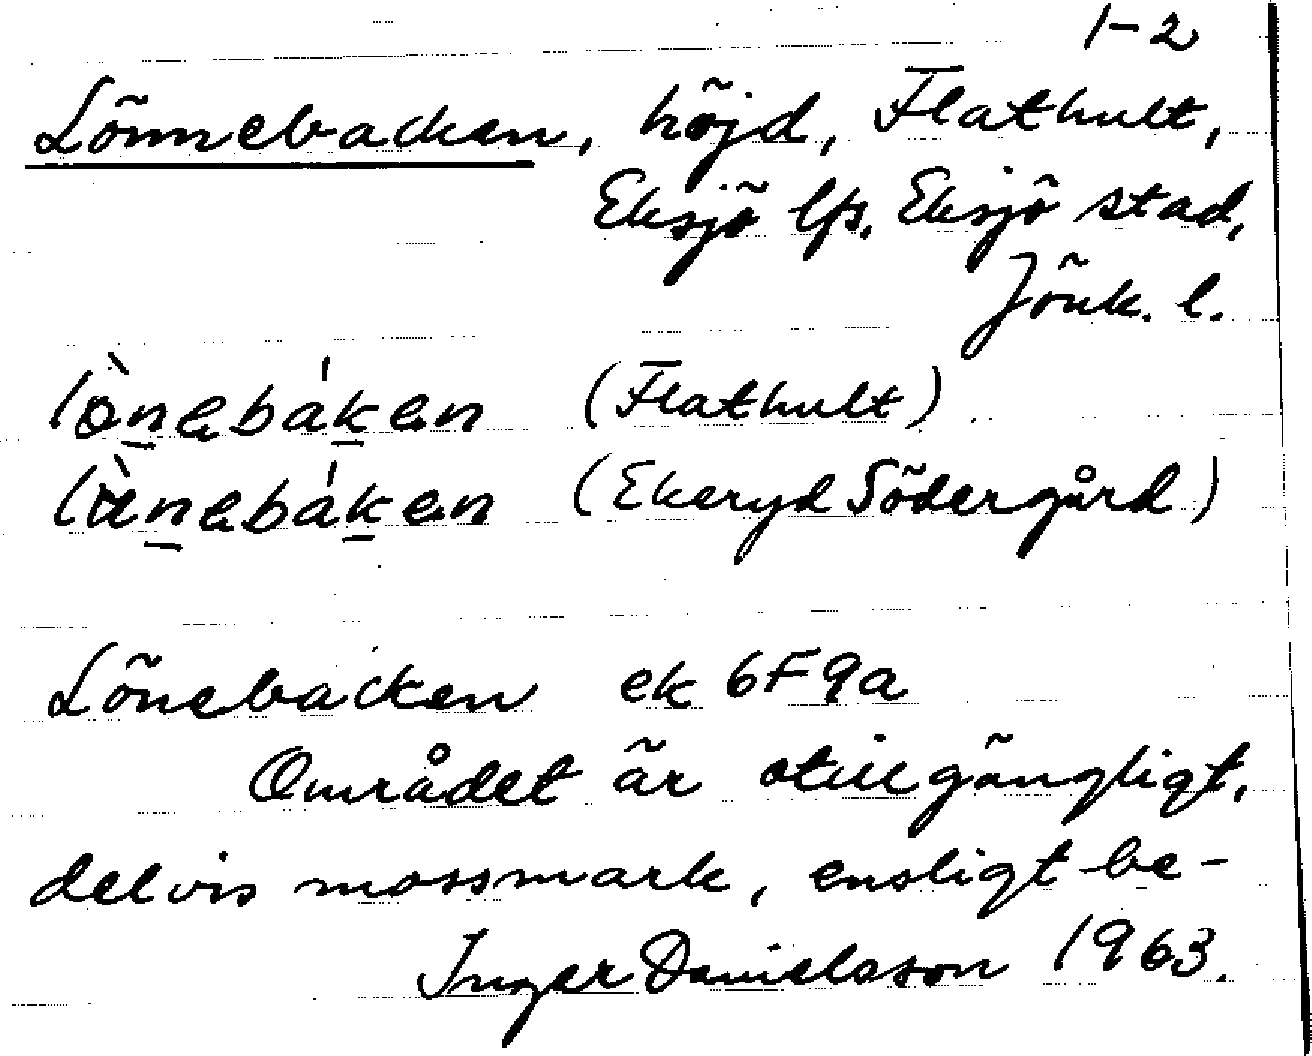 1-2
Lönnebacken, höjd, Flathult,
Eksjö lfs, Eksjö stad,
Jönk. l.
lö̀nebáken (Flathult)
(Ekeryd Södergård)
Lönebacken ek 6F9a
Området är otillgängligt,
delvis mossmark, ensligt be-
Inger Danielsson 1963.